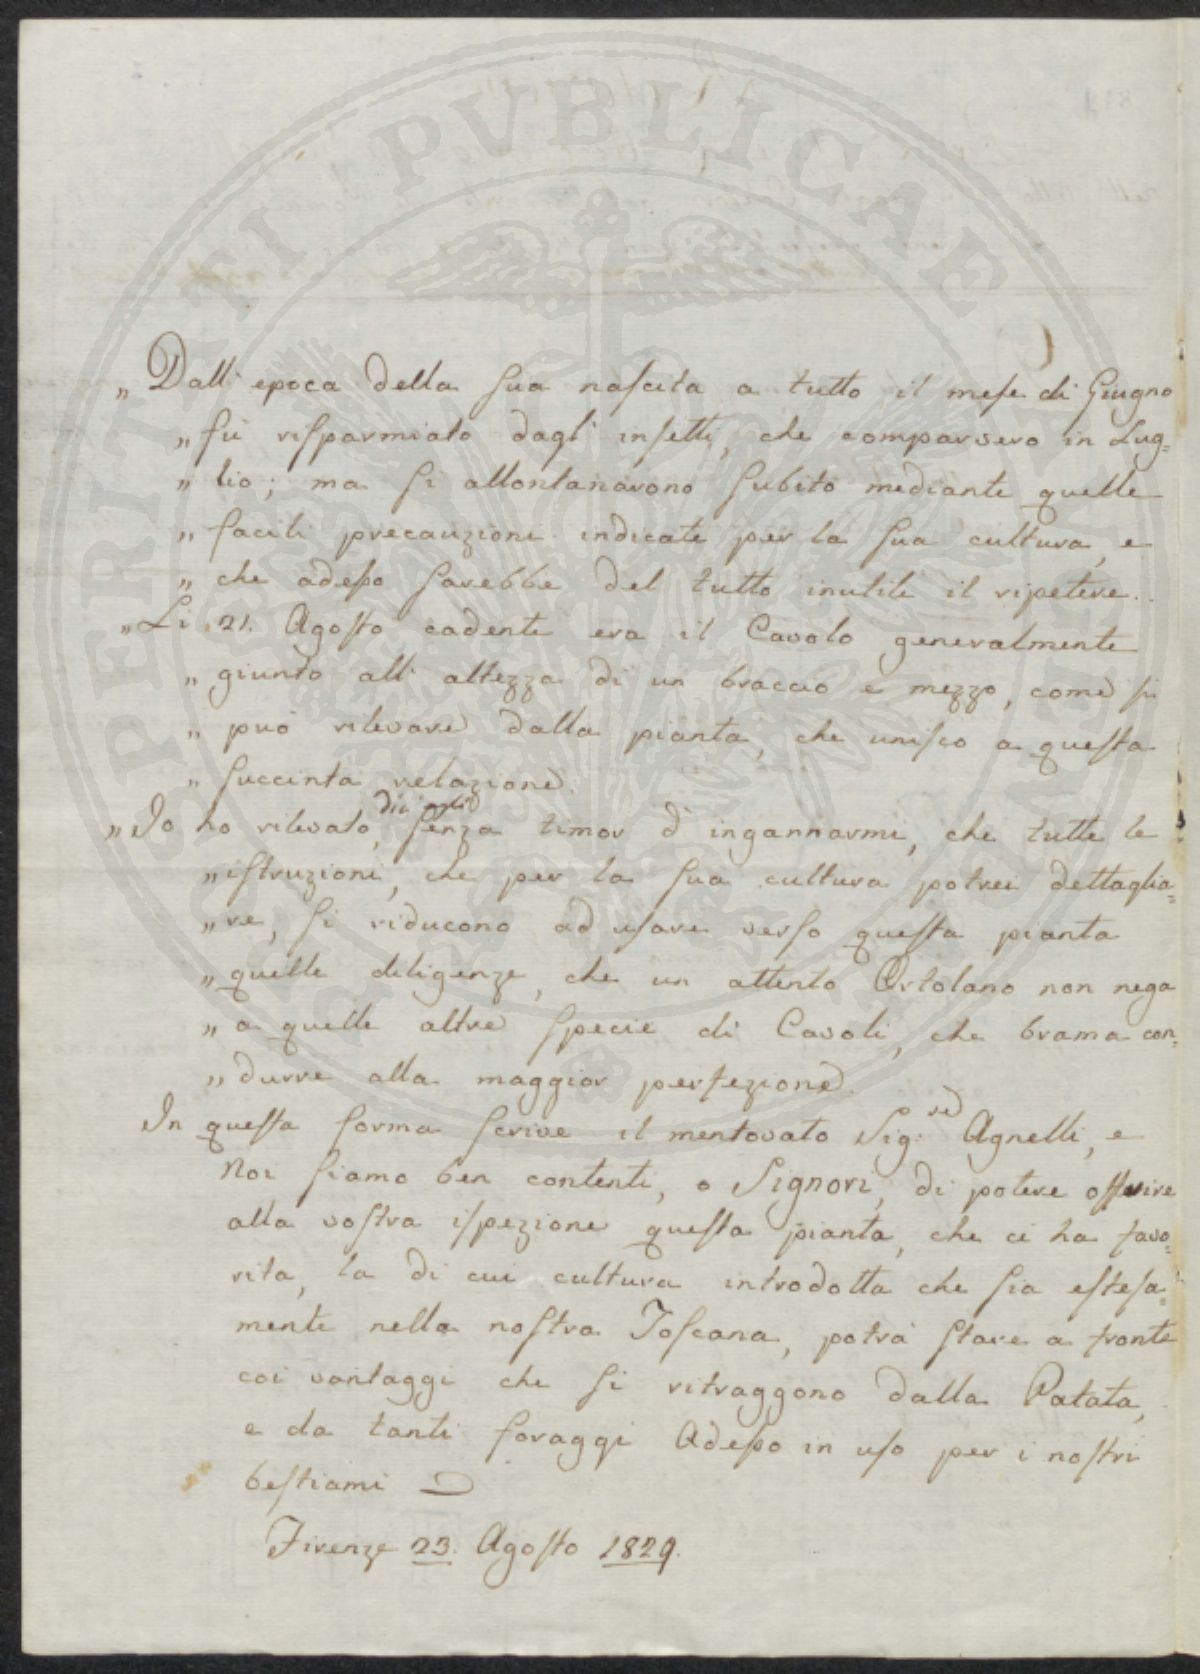 PERITATI PVBLICAE
„ Dall' epoca della sua nascita a tutto il mese di Giugno
„ fù risparmiato dagl' insetti, che comparvero in Lug=
„ lio; ma si allontanarono subito mediante quelle
„ facili precauzioni indicate per la sua cultura, e
„ che adesso sarebbe del tutto inutile il ripetere.
„ Li 21. Agosto cadente era il Cavolo generalmente
„ giunto all' altezza di un braccio e mezzo, come si
„ può rilevare dalla pianta, che unisco a questa
„ succinta relazione.
dic' egli
„ Io ho rilevato, senza timor d' ingannarmi, che tutte le
„ istruzioni, che per la sua cultura potrei dettaglia=
„ re, si riducono ad usare verso questa pianta
„ quelle diligenze, che un attento Ortolano non nega
„ a quelle altre specie di Cavoli, che brama con=
„ durre alla maggior perfezione.
In questa forma scrive il mentovato Sig:re Agnelli, e
Noi siamo ben contenti, o Signori, di potere offrire
alla vostra ispezione questa pianta, che ci ha favo=
rita, la di cui cultura introdotta che sia estesa=
mente nella nostra Toscana, potrà stare a fronte
coi vantaggi che si ritraggono dalla Patata,
e da tanti foraggi adesso in uso per i nostri
bestiami
Firenze 23. Agosto 1829.